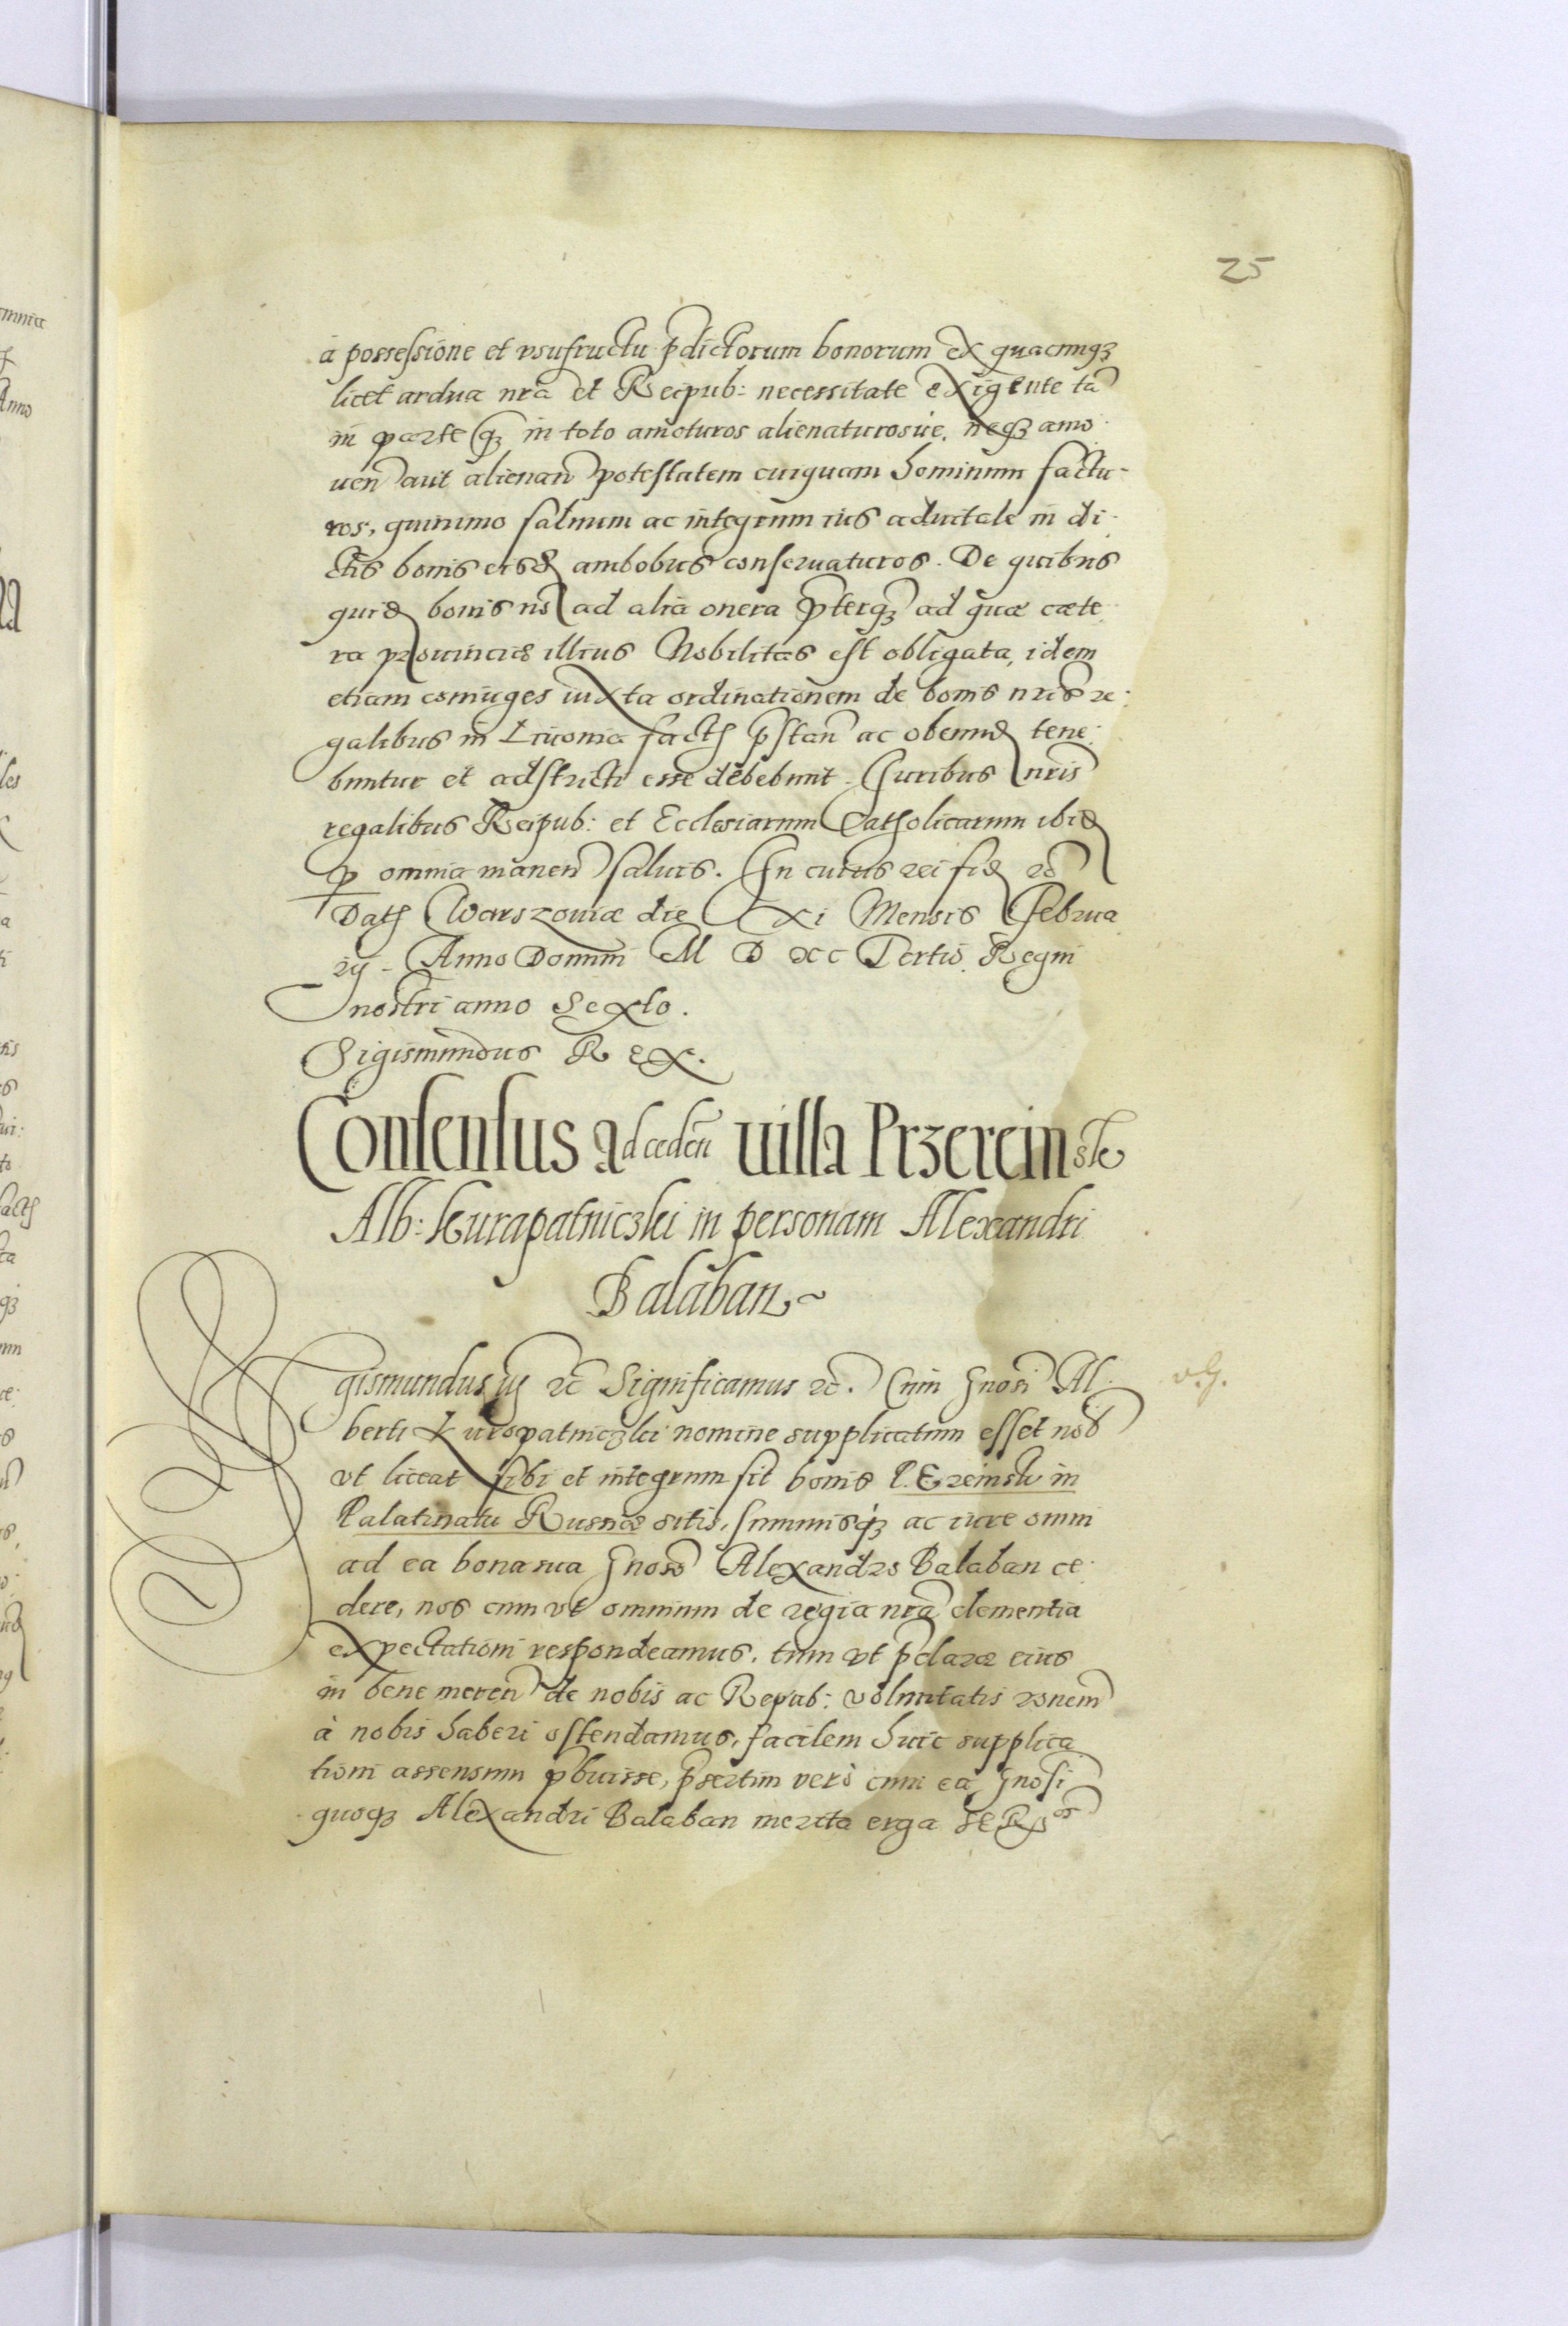 25
à possessione et vsufructu p̄dictorum bonorum ex quacunqȝ
licet ardua nrā et Reipub: necessitate exigente tā
in parte qȝ in toto amoturos alienaturosúe, neqȝ amo
uen̄ aut alienan̄ potestatem cuiquam hominum factu-
ros, quinimo saluum ac integrum ius aduitale in di
ctis bonis eisd̄ ambobus conseruaturos. De quibus
quid̄ bonis nō ad alia onera p̄terqȝ ad quæ cæte
ra prouinciæ illius Nobilitas est obligata, idem
etiam coniuges iuxta ordinationem de bonis nris̄ re:
galibus in Liuonia fact̄ p̄stan̄ ac obeund̄ tene:
buntur et adstricti esse debebunt. Iuribus nris̄
regalibus Reipub: et Ecclesiarum Catholicarum ibid̄
ꝑ omnia manen̄ saluis. In cuius rei fid̄ ꝛc̄
Dat̄ Warszouiæ die XI Mensis Februa
rij. Anno Domini M D XC Tertio. Regni
nostri anno Sexto.
Sigismundus Rex.
Consensus ad ceden̄ uilla Przereinsk
Alb: Kurapatniczki in personam Alexandri
Balaban
gismundus iij ꝛc Significamus ꝛc. Cum Gnosi Al
berti Kuropatniczki nomine supplicatum esset nob̄
vt liceat sibi et integrum sit bonis P. Ereinsk in
Palatinatu Russiæ sitis, summisqȝ ac iure omni
ad ea bona sua Gnoso Alexandro Balaban ce
dere, nos cum vt omnium de regia nrā clementia
expectationi respondeamus, tum vt p̄claræ eius
in bene meren̄ de nobis ac Repub: voluntatis ronem̄
à nobis haberi ostendamus, facilem huic supplica
tioni assensum p̄buisse, p̄sertim verò cum ea Gnosi
quoqȝ Alexandri Balaban merita erga